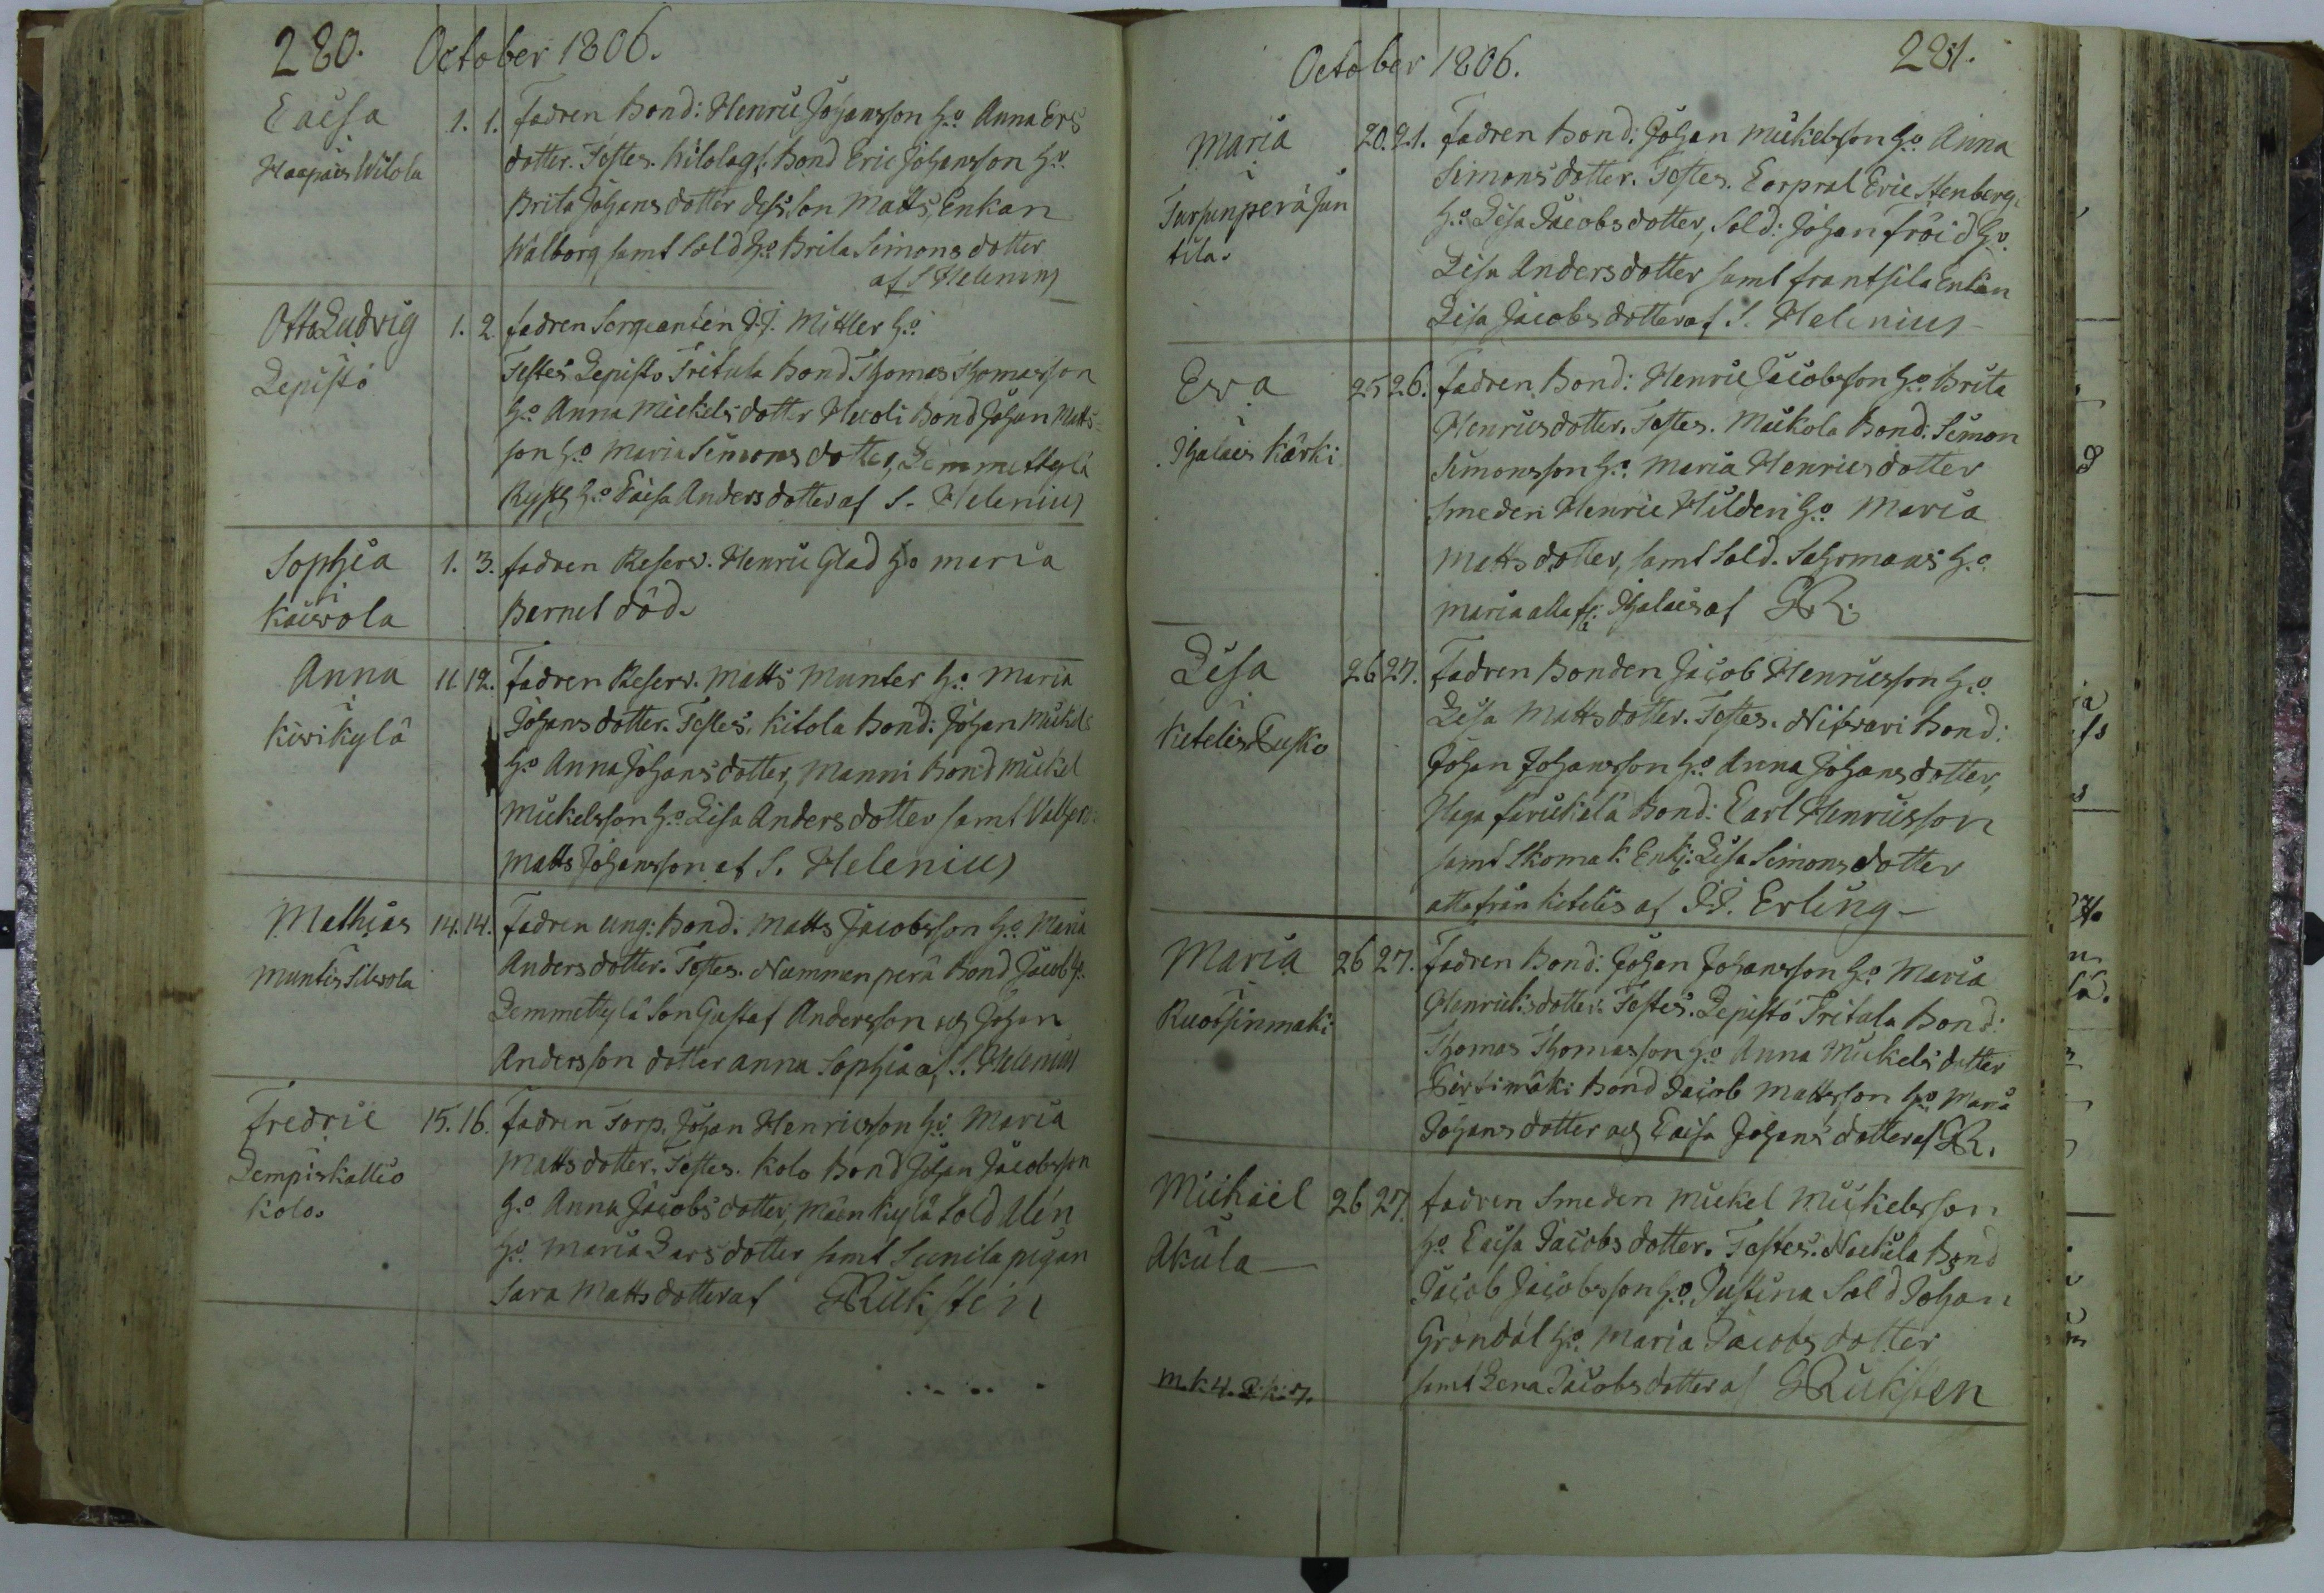 280. October 1806.
Caisa 1. 1. Fadren Bond: Henric Johansson h:o Anna Ers
Haapais Wilola dotter. Testes. Kilolag: Bond Eric Johansson h:o
Brita Johans dotter dess Son Matts, Enkan
Walborg samt Sold h:o Brita Simons dotter
af S Helenius
Otto Ludvig 1. 2 fadren Sergeanten J.J. Mittler h:o
Lepistö Testes Lepisto Tritula Bond Thomas Thomasson
h:o Anna Mickels dotter Huoli Bond Johan Matts
son h:o Maria Simons dotter, Lemmettylä
h:o Caisa Anders dotter af S. Helenius
Sophia 1. 3. fadren Reserv. Henric Glad h:o maria
i Kaiwola Barnet död.
Anna 11. 12. Fadren Reserv. Matts Munter h:o Maria
i Kiwikylä Johans dotter. Testes. Kitola Bond: Johan Mickels
h:o Anna Johans dotter, Manni Bond Mickel
Mickelsson h:o Lisa Anders dotter samt
Matts Johansson af S. Helenius
Mathias 14. 14. Fadren ung: Bond. Matts Jacobsson h:o Maria
Muntis Silwola Anders dotter. Testes. Nummenperä Bond Jacob
Lemmettylä Son Gustaf Andersson och Johan
Andersson dotter anna Sophia af S. Helenius
Fredric 15. 16. fadren Torp. Johan Henricsson h:o Maria
Lempiskallio Matts dotter. Testes. Kolo Bond Johan Jacobsson
Kolo. h:o Anna Jacobs dotter, Mäen Kylä Sold Alén
h:o Maria Lars dotter samt Sunila pigan
Sara Matts dotter af GRickstén
October 1806. 281.
Maria 20. 21. Fadren Bond: Johan Mickelsson h:o Anna
i Simons dotter. Testes. Corpral Eric Stenberg
Tursunperä Jun h:o Lisa Jacobs dotter, Sold: Johan fröid h:o
tila. Lisa Anders dotter samt frantsila Enkan
Lisa Jacobs dotter af S. Helenius
Eva 25 26. Fadren Bond: Henric Jacobsson h:o Brita
i Henrics dotter. Testes. Maikola Bond. Simon
Ihalais Kärki Simonsson h:o Maria Henrics dotter
Smeden Henric Hilden h:o Maria
Matts dotter, samt Sold. Sahrmans h:o
Maria alla fr: Ihalais af GR.
Lisa 26 27. Fadren Bonden Jacob Henricsson h:o
i Lisa Matts dotter. Testes. Nitwari Bond:
Ketelis Eusko Johan Johansson h:o Anna Johans dotter,
Bond: Carl Henricsson
samt Skomak. Enk: Lisa Simons dotter
alla från Ketelis af J.J. Erling
Maria 26 27. Fadren Bond: Johan Johansson h:o Maria
i Henricks dotter. Testes. Lepistö Tritula Bond:
Ruotsinmäki Thomas Thomasson h:o Anna Mickels dotter
Bond Jacob Mattsson h:o Maria
Johans dotter och Caisa Johans dotter af GR.
Michaël 26 27. fadren Smeden Mickel Mickelsson
i h:o Caisa Jacobs dotter. Testes. Nackila Bond
Akula Jacob Jacobsson h:o Justina Sold Johan
Gröndal h:o Maria Jacobs dotter
m.k. 4. q.k. 7. samt Lena Jacobs dotter af GRicksten